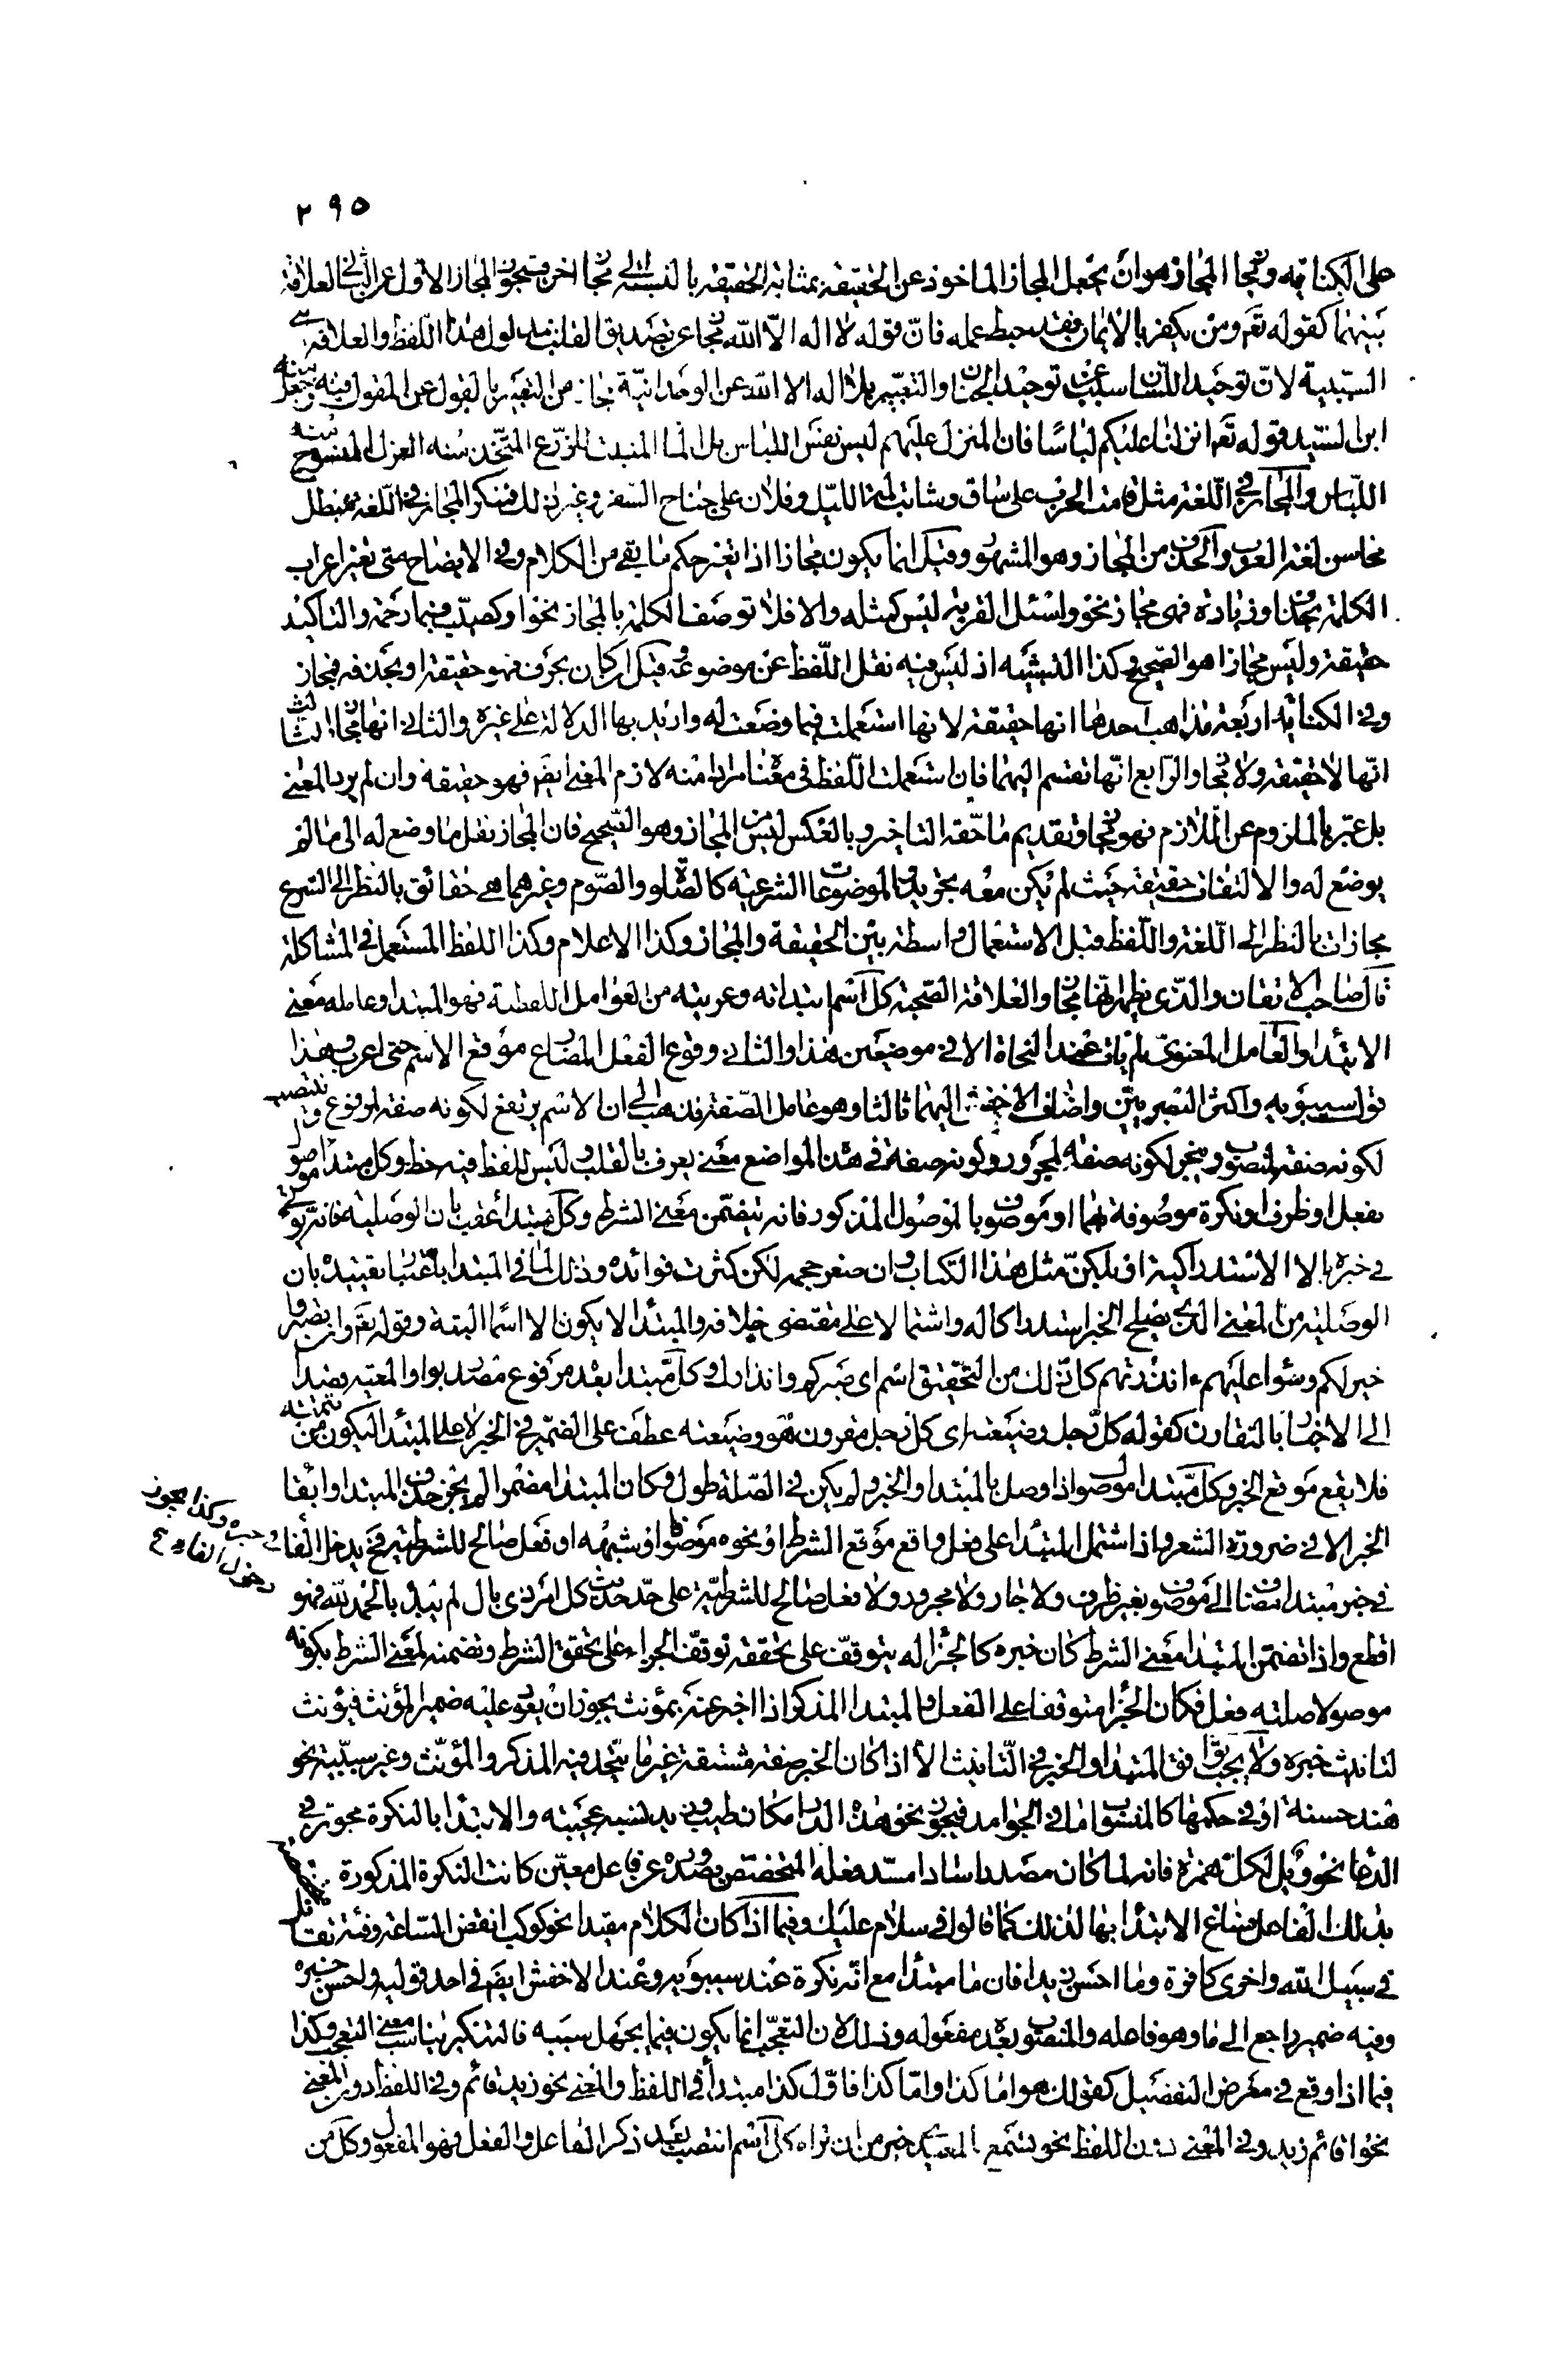 ٢٩٥
على الكناية ومجاز المجاز هو ان يجعل المجاز الماخوذ عن الحقيقة بمثابة الحقيقة بالنسبة الى مجاز اخر فيتجوز بالمجاز الاول عن الثاني لعلاقة
بينهما كقوله تعـ ومن يكفر بالايمان فقد حبط عمله فانّ قوله لا اله الّا الله مجاز عن تصديق القلب بمدلول هذا اللفظ والعلاقة هي
السببية لانّ توحيد اللسان مسبب عن توحيد الجنان والتعبير بلا اله الا الله عن الوحدانية مجاز من التعبير بالقول عن المقول فيه وجعل منه
ابن السيد قوله تعـ انزلنا عليكم لباسًا فان المنزل عليهم ليس نفس اللباس بل الماء المنبت للزرع المتّخذ منه الغزل المنسوج منه
اللباس والمجاز في اللغة مثل قامت الحرب على ساق وشابت لمة الليل وفلان على جناح السفر وغير ذلك فمنكر المجاز في اللغة مبطل
محاسن لغة العرب والحذف من المجاز وهو المشهور وقيل انما يكون مجازا اذا تغير حكم ما بقي من الكلام وفي الايضاح متى تغير اعراب
الكلمة بحذف او زيادة فهي مجاز نحو واسئل القرية ليس كمثله والا فلا توصف الكلمة بالمجاز نحو او كصيّب فبما رحمة والتاكيد
حقيقة وليس مجازا هو الصحيح وكذا التشبيه اذ ليس فيه نقل اللفظ عن موضوعه وقيل ان كان بحرف فهو حقيقة او بحذفه فمجاز
وفي الكناية اربعة مذاهب احدها انها حقيقة لانها استعملت فيما وضعت له واريد بها الدلالة على غيره والثاني انها مجاز الثالث
انّها لا حقيقة ولا مجاز والرابع انّها تقسم اليهما فان استعملت اللّفظ في معناه مرادا منه لازم المعنى ايضـ فهو حقيقة وان لم يرد المعنى
بل عبّر بالملزوم عن اللازم فهو مجاز وتقديم ما حقّه التاخير وبالعكس ليس من المجاز وهو الصحيح فان المجاز نقل ما وضع له الى ما لم
يوضع له والالتفات حقيقة حيث لم يكن معه تجريد والموضوعات الشرعية كالصلوة والصّوم وغيرهما هي حقائق بالنظر الى الشرع
مجازات بالنظر الى اللّغة واللّفظ قبل الاستعمال واسطة بين الحقيقة والمجاز وكذا الاعلام وكذا اللفظ المستعمل في المشاكلة
قال صاحب الاتقان والذي يظهر انها مجاز والعلاقة الصحبة كل اسم ابتداته وعريته من العوامل اللفظية فهو المبتدا وعامله معنى
الابتداء والعامل المعنويّ لم يات عند النحاة الا في موضعين هذا والثاني وقوع الفعل المضارع موقع الاسم حتى اعرب وهذا
قول سيبويه واكثر البصريين واضاف الاخفش اليهما ثالثا وهو عامل الصّفة فذهب الى ان الاسم يرتفع لكونه صفة لمرفوع وينتصب
لكونه صفة لمنصوب وينجر لكونه صفة لمجرور وكونه صفة في هذه المواضع معنى يعرف بالقلب وليس للفظ فيه حظ وكل مبتدا موصول
بفعل او ظرف او نكرة موصوفة بهما او موصوف بالموصول المذكور فانه يتضمن معنى الشرط وكل مبتدا عقب بان الوصلية فانه يؤتى
في خبره بالا الاستدراكية او بلكن مثل هذا الكتاب وان صغر حجمه لكن كثرت فوائده وذلك لما في المبتدا باعتبار تقييده بان
الوصلية من المعنى الذي يصلح الخبر استدراكا له واشتمالا على مقتضى خلافه والمبتدا لا يكون الا اسما البتة وقوله تعـ وان تصبروا
خير لكم وسواء عليهم ءانذرتهم كل ذلك من التحقيق اسم اى صبركم وانذارك وكل مبتدا بعد مرفوع مصدر بواو المعية بقصد
الى الاخبار بالتقارن كقوله كل رجل وضيعته اى كل رجل مقرون هو وضيعته عطف على الضمير في الخبر لا على المبتدا ليكون من تتمته
فلا يقع موقع الخبر وكل مبتدا موصول اذا وصل بالمبتدا والخبر ولم يكن في الصّلة طول وكان المبتدا مضمرا لم يجز حذف المبتدا وابقاء
الخبر الا في ضرورة الشعر واذا اشتمل المبتدا على فعل واقع موقع الشرط او نحوه موصولا او شبهه او فعل صالح للشرطية فح يدخل الفاء في خبره وكذا يجوز
دخول الفاء
في خبر مبتدا مضاف الى موصوف بغير ظرف ولا جار ولا مجرور ولا فعل صالح للشرطية على حدّ حديث كل امر ذى بال لم يبدا بالحمد لله فهو
اقطع واذا تضمن المبتدا معنى الشرط كان خبره كالجزاء له يتوقف على تحققه توقف الجزاء على تحقق الشرط وتضمنه لمعنى الشرط بكونه
موصولا صلته فعل فكان الجزا متوقفا على الفعل والمبتدا المذكر اذا اخبر عنه بمؤنث يجوز ان يعود عليه ضمير المؤنث فيؤنث
لتانيث خبره ولا يجب توافق المبتدا والخبر في التانيث الا اذا كان الخبر صفة مشتقة غير ما يتحد فيه المذكر والمؤنث وغير سببية نحو
هند حسنة او في حكمها كالمنسوب اما في الجوامد فيجوز نحو هذه الدار مكان طيب وزيد نسبه عجيبة والابتدا بالنكرة مجوز في
الدعا نحو ويل لكل همزة فانه لما كان مصدرا سادا مسد فعله المتخصص بصدوره عن فاعل معيّن كانت النكرة المذكورة
بذلك الفاعل فساغ الابتدا بها لذلك كما قالوا في سلام عليك وفيما اذا كان الكلام مفيدا نحو كوكب انقض الساعة وفئة تقاتل
في سبيل الله واخرى كافرة وما احسن زيدا فان ما مبتدا مع انّه نكرة عند سيبويه وعند الاخفش ايضـ في احد قوليه واحسن خبره
وفيه ضمير راجع الى ما وهو فاعله والمنصوب بعد مفعوله وذلك لان التعجّب انما يكون فيما يجهل سببه فالتنكير يناسب معنى التعجب وكذا
فيما اذا وقع في معرض التفصيل كقولك هو اما كذا واما كذا فاوّل كذا مبتدأ في اللفظ والمعنى نحو زيد قائم وفي اللفظ دون المعنى
نحو اقائم زيد وفي المعنى دون اللفظ نحو تسمع بالمعيدي خير من ان تراه كل اسم انتصب بعد ذكر الفاعل والفعل فهو المفعول وكل من